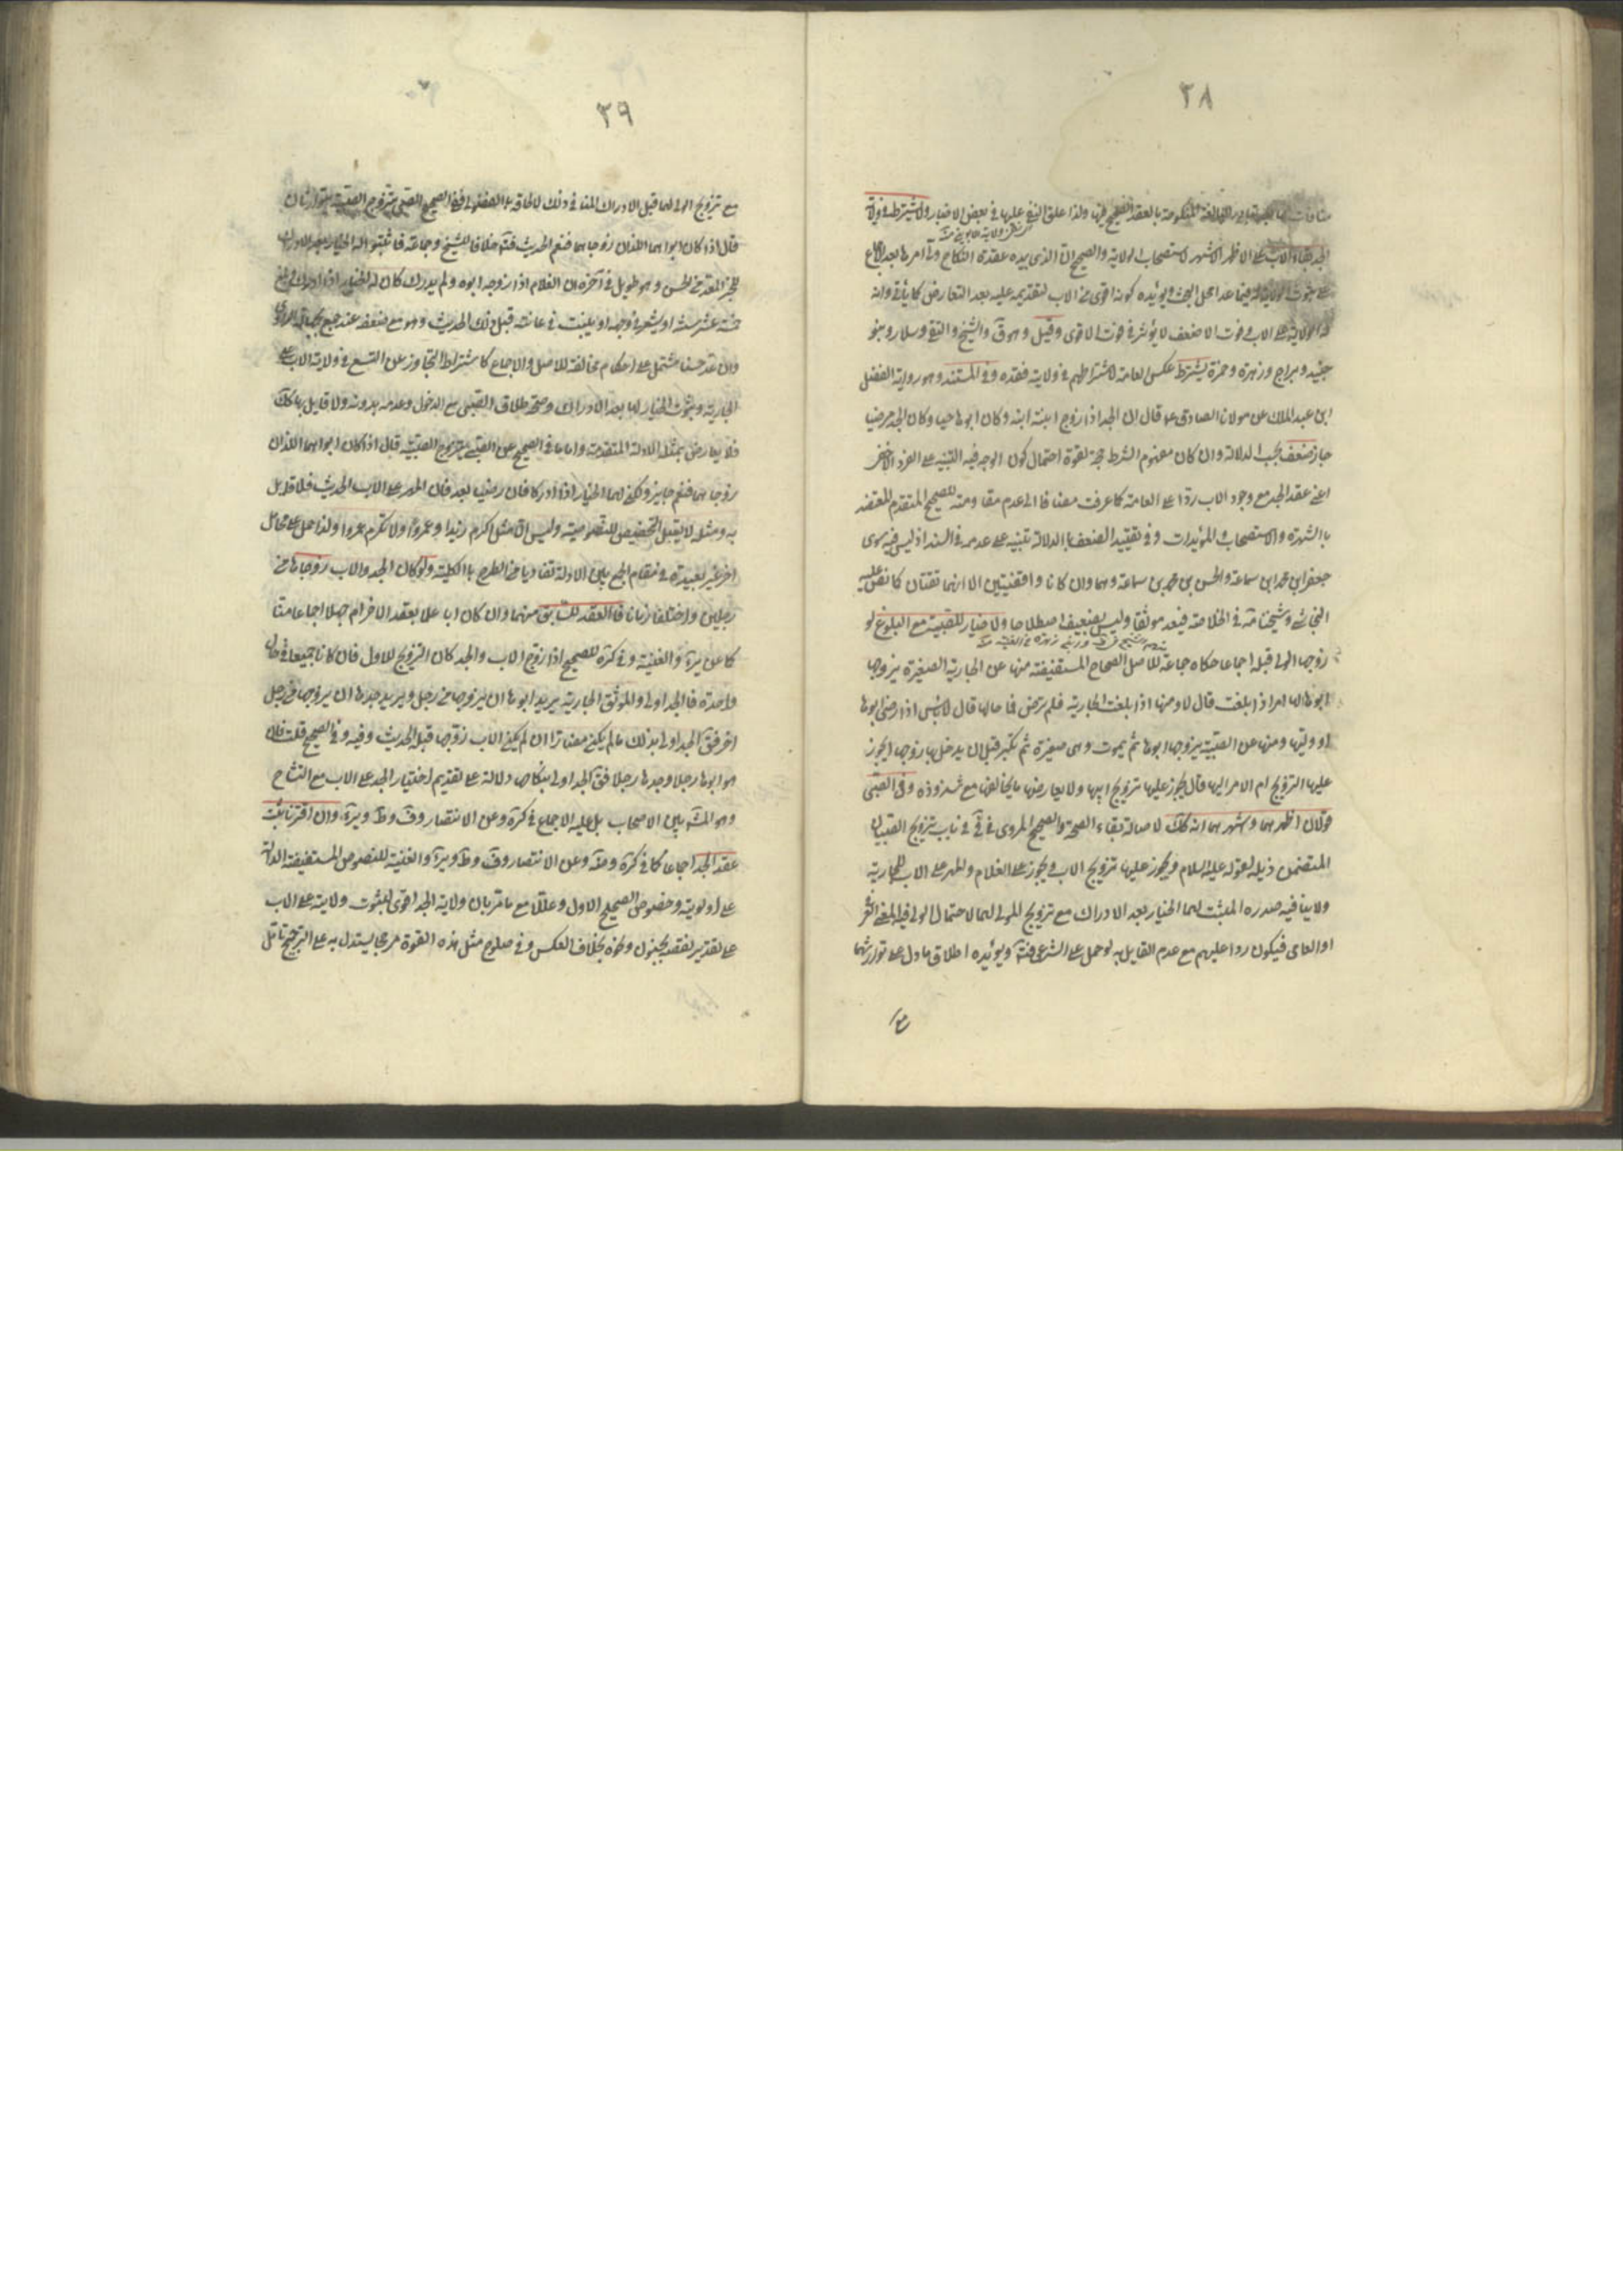 ٣٨
ولذا علق النفي عليها في بعض الاخبار ولا يشترط في ولاية
الجد بقاء الاب على الاظهر الاشهر لاستصحاب الولاية والصحيح ان الذي بيده عقدة النكاح ولي امرها بعد الاجماع
على ثبوت الولاية له فيما عدا محل البحث ويؤيده كونه اقوى من الاب لتقديمه عليه بعد التعارض كما يأتي وانه
له الولاية على الاب وفوت الاضعف لا يؤثر في فوت الاقوى وقيل وهو ق والشيخ والتقي وسلار وبنو
جنيد وبراج وزهرة وحمزة يشترط عكس العامة لاشتراطهم في ولايته فقده وفي المستند وهو رواية الفضل
ابن عبد الملك عن مولانا الصادق ع قال ان الجد اذا زوج ابنة ابنه وكان ابوها حيا وكان الجد مرضيا
جاز ضعف بحسب الدلالة وان كان مفهوم الشرط حجة لقوة احتمال كون الوجه فيه التنبيه على الفرد الاخفى
اعني عقد الجد مع وجود الاب ردا على العامة كما عرفت مضافا الى عدم مقاومته للصحيح المتقدم المعتضد
باالشهرة والاستصحاب والمؤيدات وفي تقييد الضعف باالدلالة تنبيه على عدمه في السند اذ ليس فيه سوى
جعفر ابن محمد ابن سماعة والحسن بن محمد بن سماعة وهما وان كانا واقفيين الا انهما ثقتان كما نص عليه
النجاشي وشيخنا مة في الخلاصة فيعد موثقا وليس بضعيف اصطلاحا ولا خيار للصبية مع البلوغ لو
زوجها الولي قبله اجماعا حكاه جماعة للاصل والصحاح المستفيضة منها عن الجارية الصغيرة يزوجها
ابوها الها امر اذا بلغت قال لا ومنها اذا بلغت الجارية فلم ترض فما حالها قال لا بأس اذا رضي ابوها
او وليها ومنها عن الصبية يزوجها ابوها ثم يموت وهي صغيرة ثم تكبر قبل ان يدخل بها زوجها ايجوز
عليها التزويج ام الامر اليها قال يجوز عليها تزويج ابيها ولا يعارضها ما يخالفها مع شذوذه وفي الصبي
قولان اظهرهما واشهرهما انه كك لاصالة بقاء الصحة والصحيح المروي في في في باب تزويج الصبيان
المتضمن ذيله لقوله عليه السلام ويجوز عليها تزويج الاب ويجوز على الغلام والمهر على الاب للجارية
ولا ينافيه صدره المثبت لهما الخيار بعد الادراك مع تزويج الولي لهما لاحتمال الولي فيه المعنى
او العامي فيكون ردا عليهم مع عدم القايل به لو حمل على الشرعي فت ويؤيده اطلاق ما دل على توارثهما
مع
٣٩
مع تزويج الولي لهما قبل الادراك المنافي ذلك لالحاقه بالفضولي ففي الصحيح الصبي يتزوج الصبية يتوارثان
قال اذا كان ابواهما اللذان زوجاهما فنعم الحديث فت خلافا للشيخ وجماعة فاثبتوا له الخيار بعد الادراك
وهو طويل في آخره ان الغلام اذا زوجه ابوه ولم يدرك كان له الخيار اذا ادرك وبلغ
خمسة عشر سنة او يشعر في وجهه او ينبت في عانته قبل ذلك الحديث وهو مع ضعفه عند جمع بجهالة الراوي
وان عد حسنا مشتمل على احكام مخالفة للاصل والاجماع كاشتراط التجاوز عن التسع في ولاية الاب على
الجارية وثبوت الخيار لها بعد الادراك وصحة طلاق الصبي مع الدخول وعدمه بدونه ولا قايل بها كك
فلا يعارض بمثله الادلة المتقدمة واما ما في الصحيح عن الصبي يتزوج الصبية قال اذا كان ابواهما اللذان
زوجاهما فنعم جايز ولكن لهما الخيار اذا ادركا فان رضيا بعد فان المهر على الاب الحديث فلا قايل
به ومثله لا يقبل التخصيص للنصوصية وليس الا مثل اكرم زيدا وعمروا ولا تكرم عمروا ولذا حمل على محامل
اخر غير بعيدة في مقام الجمع بين الادلة تفاديا من الطرح باالكلية ولو كان الجد والاب زوجاها من
رجلين واختلفا زمانا فاالعقد للسابق منهما وان كان ابا علا بعقد الاخر ام جهلا اجماعا منا
كما عن ئر والغنية وفي كره للصحيح اذا زوج الاب والجد كان التزويج للاول فان كانا جميعا في حال
واحدة فالجد اولى والموثق الجارية يريد ابوها ان يزوجها من رجل ويريد جدها ان يزوجها من رجل
اخر فق الجد اولى بذلك مالم يكن مضارا ان لم يكن الاب زوجها قبله الحديث وفيه وفي الصحيح قلت فان
هوا ابوها رجلا وجدها رجلا فق الجد اولى بنكاحها دلالة على تقديم اختيار الجد على الاب مع التشاح
وهو المش بين الاصحاب بل عليه الاجماع في كره وعن الانتصار وف وط وئر وان اقترنا ثبت
عقد الجد اجماعا كما في كره وضه وعن الانتصار وف وط وئر والغنية للنصوص المستفيضة الدالة
على اولويته وخصوص الصحيح الاول وعلل مع ما مر بان ولاية الجد اقوى لثبوت ولايته على الاب
على تقدير نقصه بجنون ونحوه بخلاف العكس وفي صلوح مثل هذه القوة مرجحا يستدل به على الترجيح تأمل